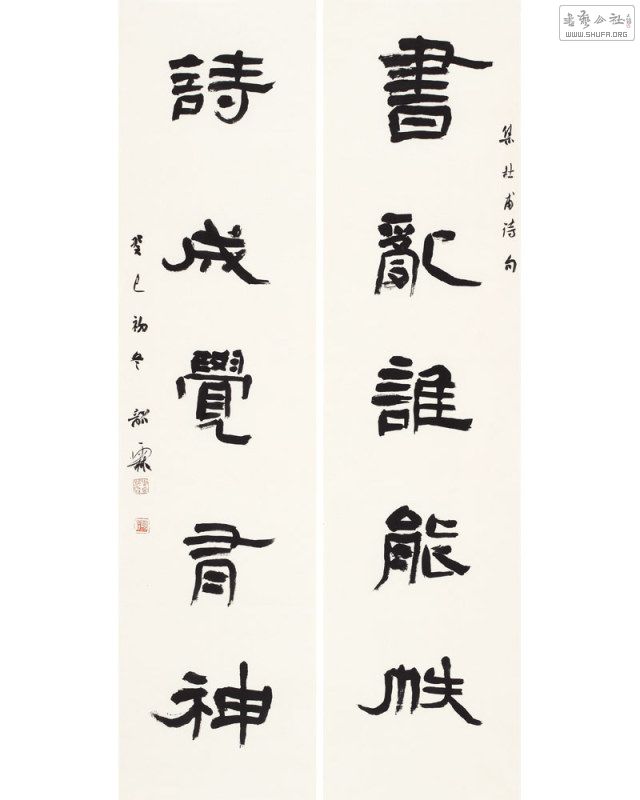 集杜甫诗句
書亂誰能帙
詩成覺有神
癸巳初冬 韶霖
書藝公社
WWW.SHUFA.ORG